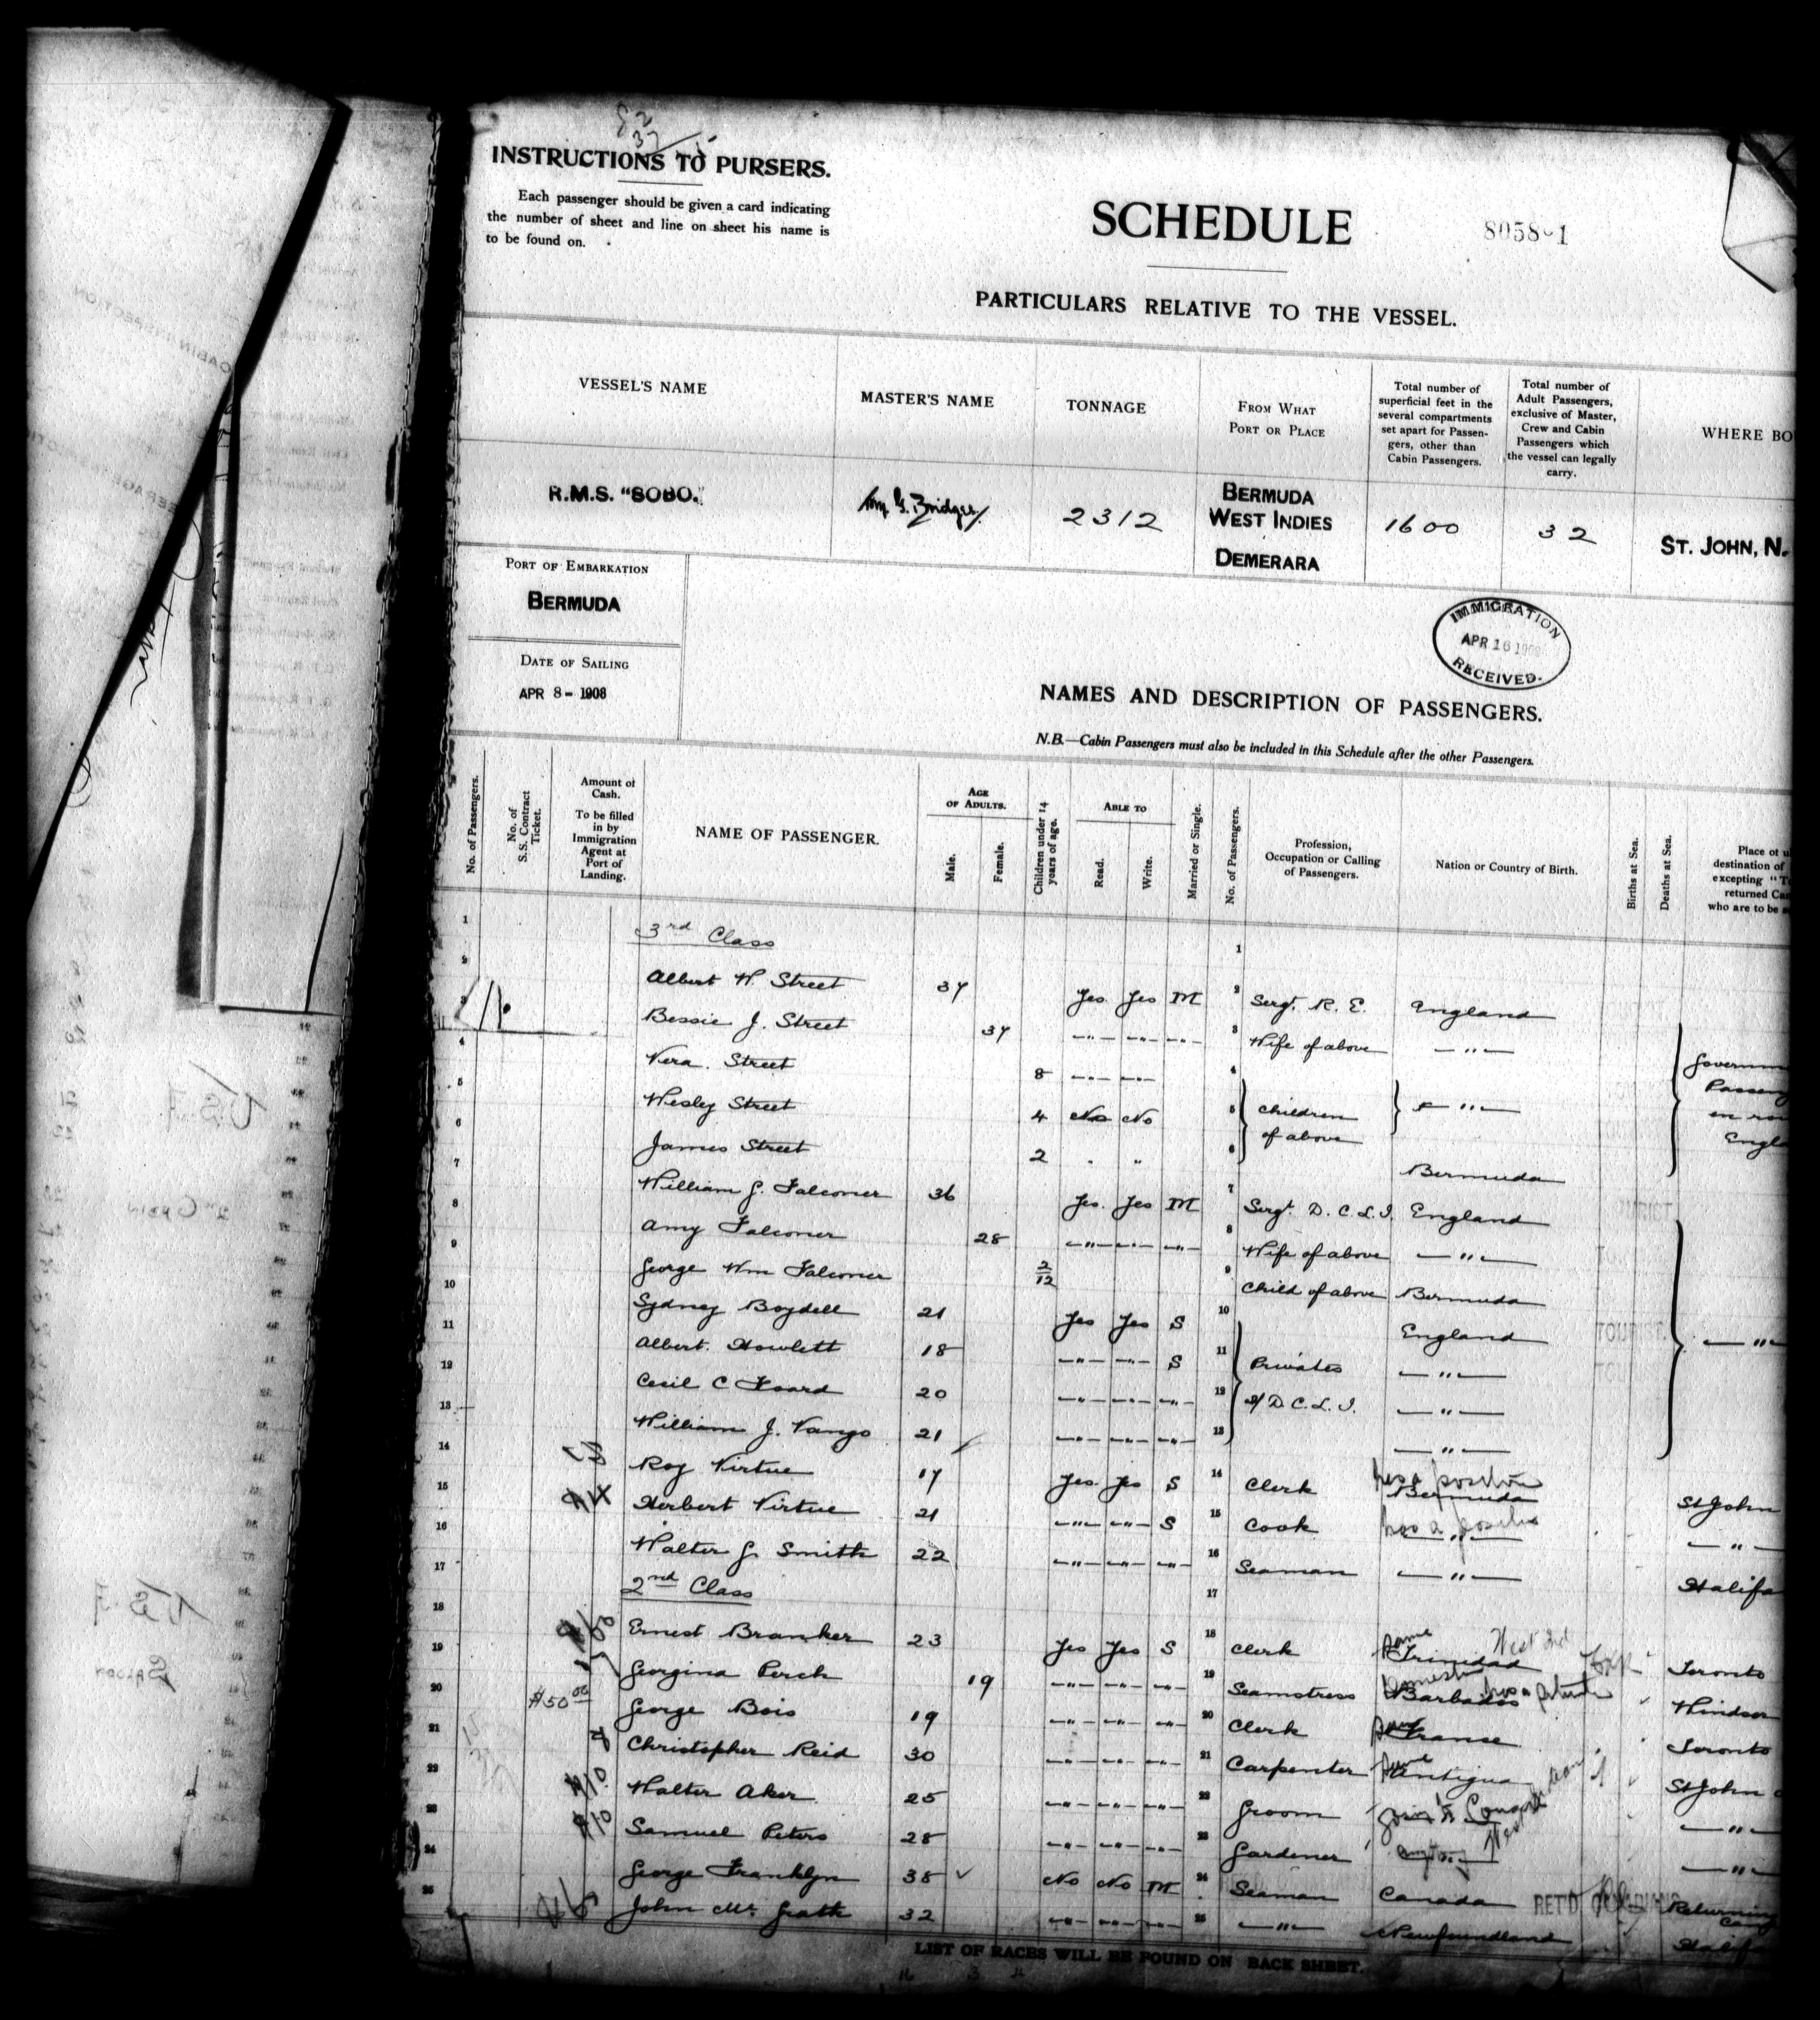 INSTRUCTIONS TO PURSERS.
Each passenger should be given a card indicating
the number of sheet and line on sheet his name is
to be found on.
SCHEDULE
8058-1
PARTICULARS RELATIVE TO THE VESSEL.
VESSEL'S NAME
MASTER'S NAME
TONNAGE
FROM WHAT
PORT OR PLACE
Total number of
superficial feet in the
several compartments
set apart for Passen-
gers, other than
Cabin Passengers.
Total number of
Adult Passengers,
exclusive of Master,
Crew and Cabin
Passengers which
the vessel can legally
carry.
WHERE BO
R.M.S. "SOBO."
Bridges
2312
BERMUDA
WEST INDIES
DEMERARA
1600
32
ST. JOHN, N.
PORT OF EMBARKATION
BERMUDA
DATE OF SAILING
APR 8- 1908
IMMIGRATION
APR 16 1908
RECEIVED.
NAMES AND DESCRIPTION OF PASSENGERS.
N.B.—Cabin Passengers must also be included in this Schedule after the other Passengers.
No. of Passengers.
No. of
S.S. Contract
Ticket.
Amount of
Cash.
To be filled
in by
Immigration
Agent at
Port of
Landing.
NAME OF PASSENGER.
AGE
OF ADULTS.
Male.
Female.
Children under 14
years of age.
ABLE TO
Read.
Write.
Married or Single.
No. of Passengers.
Profession,
Occupation or Calling
of Passengers.
Nation or Country of Birth.
Births at Sea.
Deaths at Sea.
Place of u
destination of
excepting "To
returned Can
who are to be
1 3rd Class 1
2 Albert W. Street 37 Yes Yes M 2 Sergt. R. E. England
3 Bessie J. Street 37 —"— —"— —"— 3 Wife of above —"—
4 Vera Street 8 —"— —"— 4
5 Wesley Street 4 No No 5 Children of above —"—
6 James Street 2 " " 6 Bermuda
Governm
Passeng
en rou
Engla
7 William G. Falconer 36 Yes Yes M 7 Sergt. D. C. L. I. England
8 Amy Falconer 28 —"— —"— —"— 8 Wife of above —"—
9 George Wm Falconer 2/12 9 Child of above Bermuda
10 Sydney Boydell 21 Yes Yes S 10 England —"—
11 Albert Howlett 18 —"— —"— S 11 Privates —"—
12 Cecil C Foard 20 —"— —"— —"— 12 of D. C. L. I. —"—
13 William J. Vango 21 —"— —"— —"— 13 —"—
14 Roy Virtue 17 Yes Yes S 14 Clerk has a position Bermuda St John
15 $4 Herbert Virtue 21 —"— —"— S 15 Cook has a position —"— —"—
16 Walter G. Smith 22 —"— —"— —"— 16 Seaman —"— Halifa
17 2nd Class 17
18 Ernest Branker 23 Yes Yes S 18 Clerk same Trinidad West Ind Toronto
19 Georgina Perch 19 —"— —"— —"— 19 Seamstress Domestic Barbados has a position Windsor
20 $50 00 George Bois 19 —"— —"— —"— 20 Clerk France Toronto
21 Christopher Reid 30 —"— —"— —"— 21 Carpenter Antigua St John
22 $10 Walter Aker 25 —"— —"— —"— 22 Groom —"—
23 $10 Samuel Peters 28 —"— —"— —"— 23 Gardener West Indian —"—
24 George Franklyn 38 No No M 24 Seaman Canada RET'D CANADIANS Returning
25 John McGrath 32 —"— —"— —"— 25 —"— Newfoundland Halifa
LIST OF RACES WILL BE FOUND ON BACK SHEET.